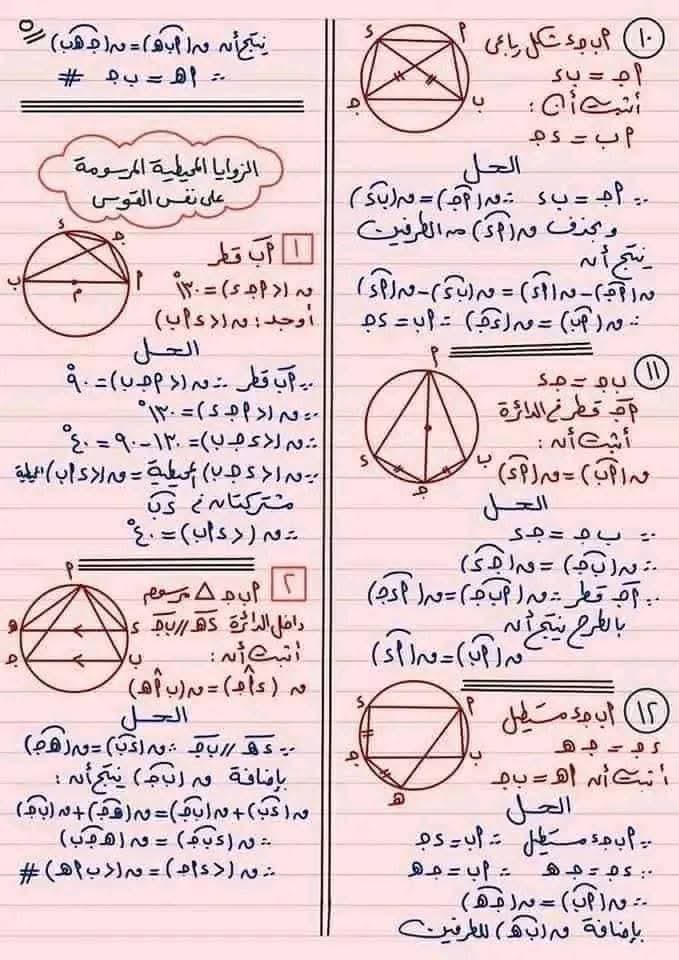 ١٠
أ ب جـ د شكل رباعى
أ جـ = ب د
أثبت أن :
أ ب = د جـ
الحل
∵ أ جـ = ب د ∴ ق(أ جـ) = ق(ب د)
و بحذف ق(أ د) من الطرفين
ينتج أنه
ق(أ جـ) - ق(أ د) = ق(ب د) - ق(أ د)
∴ ق(أ ب) = ق(د جـ) ∴ أ ب = د جـ
١١
ب جـ = جـ د
أ جـ قطر فى الدائرة
أثبت أنه :
ق(أ ب) = ق(أ د)
الحل
∵ ب جـ = جـ د
∴ ق(ب جـ) = ق(جـ د)
∵ أ جـ قطر ∴ ق(أ ب جـ) = ق(أ د جـ)
بالطرح ينتج أنه
ق(أ ب) = ق(أ د)
١٢
أ ب جـ د مستطيل
د جـ = جـ هـ
أثبت أنه أ هـ = ب جـ
الحل
∵ أ ب جـ د مستطيل ∴ أ ب = د جـ
∵ د جـ = جـ هـ ∴ أ ب = جـ هـ
∴ ق(أ ب) = ق(جـ هـ)
بإضافة ق(ب هـ) للطرفين
٥
ينتج أنه ق(أ ب هـ) = ق(جـ هـ ب)
∴ أ هـ = ب جـ #
الزوايا المحيطية المرسومة
على نفس القوس
١
أ ب قطر
ق(> أ جـ د) = ١٣٠°
أوجد : ق(> د أ ب)
الحل
∵ أ ب قطر ∴ ق(> أ جـ ب) = ٩٠°
∵ ق(> أ جـ د) = ١٣٠°
∴ ق(> د جـ ب) = ١٣٠ - ٩٠ = ٤٠°
∵ ق(> د جـ ب) المحيطية = ق(> د أ ب) المحيطية
مشتركتان فى د ب
∴ ق(> د أ ب) = ٤٠°
٢
أ ب جـ △ مرسوم
داخل الدائرة د هـ // ب جـ
أثبت أنه :
ق(د أ جـ) = ق(ب أ هـ)
الحل
∵ د هـ // ب جـ ∴ ق(د ب) = ق(هـ جـ)
بإضافة ق(ب جـ) ينتج أنه :
ق(د ب) + ق(ب جـ) = ق(هـ جـ) + ق(ب جـ)
∴ ق(د ب جـ) = ق(هـ جـ ب)
∴ ق(> د أ جـ) = ق(> ب أ هـ) #